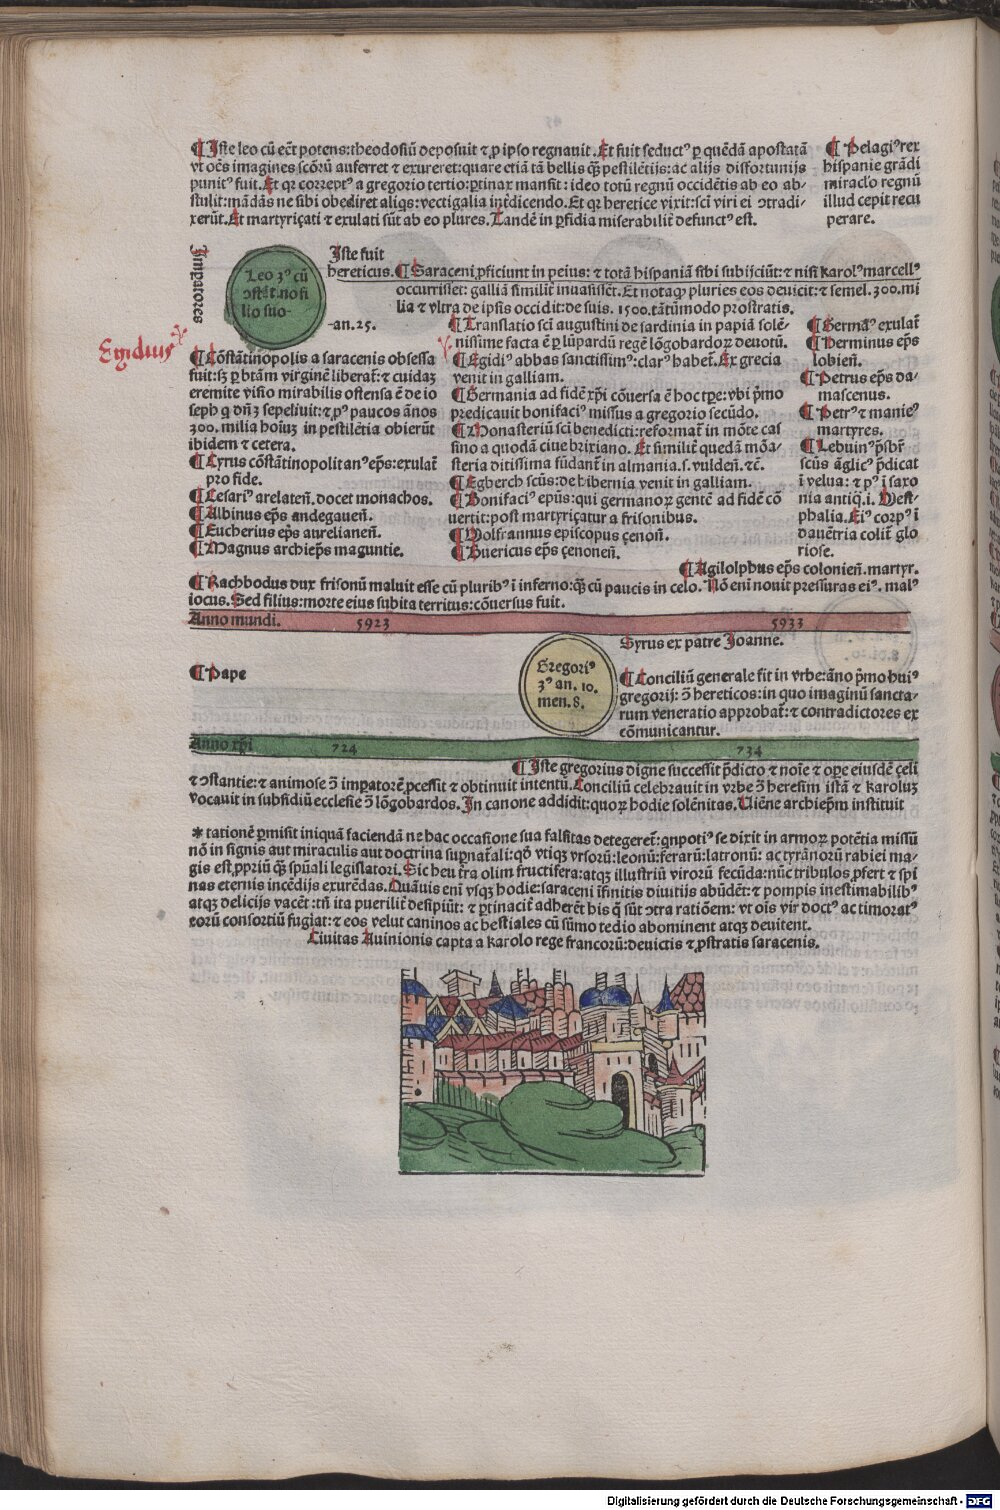 ¶ Iste leo cū eēt potens: theodosiū deposuit ⁊ ꝓ ipso regnauit. Et fuit seductꝰ ꝑ quēdā apostatā
vt oēs imagines scōrū auferret ⁊ exureret: quare etiā tā bellis qȝ pestilētijs: ac alijs disfortunijs
punitꝰ fuit. Et qꝛ correptꝰ a gregorio tertio: ꝑtinax mansit: ideo totū regnū occidētis ab eo ab-
stulit: mādās ne sibi obediret aliqs: vectigalia int̄dicendo. Et qꝛ heretice vixit: sci viri ei ↄtradi-
xerūt. Et martyriçati ⁊ exulati sūt ab eo plures. Tandē in ꝑfidia miserabilit̄ defunctꝰ est.
¶ Pelagiꝰ rex
hispanie grādi
miraclo regnū
illud cepit recu
perare.
Imꝑatores
Leo 3ꝰ cū
ↄstāt. no fi
lio suo-
Iste fuit
hereticus. ¶ Saraceni ꝓficiunt in peius: ⁊ totā hispaniā sibi subijciūt: ⁊ nisi karolꝰ marcellꝰ
occurrisset: galliā similit̄ inuasissēt. Et notaqȝ pluries eos deuicit: ⁊ semel .300. mi
lia ⁊ vltra de ipsis occidit: de suis .1500. tātūmodo prostratis.
-an. 25.
Egidius
¶ Cōstātinopolis a saracenis obsessa
fuit: sȝ ꝑ btām virginē liberat̄: ⁊ cuidaȝ
eremite visio mirabilis ostensa ē de io
seph q dn̄ȝ sepeliuit: ⁊ pꝰ paucos ānos
300. milia hoīuȝ in pestilētia obierūt
ibidem ⁊ cetera.
¶ Cyrus cōstātinopolitanꝰ ep̄s: exulat̄
pro fide.
¶ Cesariꝰ arelateñ. docet monachos.
¶ Albinus ep̄s andegaueñ.
¶ Eucherius ep̄s aurelianeñ.
¶ Magnus archiep̄s maguntie.
¶ Translatio sci augustini de sardinia in papiā solē-
nissime facta ē ꝑ lupardū regē lōgobardoꝝ deuotū.
¶ Egidiꝰ abbas sanctissimꝰ: clarꝰ habet̄. Ex grecia
venit in galliam.
¶ Germania ad fidē xp̄i cōuersa ē hoc tꝑe: vbi pͥmo
predicauit bonifaciꝰ missus a gregorio secūdo.
¶ Monasteriū sci benedicti: reformat̄ in mōte cas
sino a quodā ciue brixiano. Et similit̄ quedā mōa-
steria ditissima fūdant̄ in almania. s. vuldeñ. ⁊c̄.
¶ Egberch scūs: de hibernia venit in galliam.
¶ Bonifaciꝰ ep̄us: qui germanoꝝ gentē ad fidē cō
uertit: post martyriçatur a frisonibus.
¶ Wolfrannus episcopus çenoñ.
¶ Buericus ep̄s çenoneñ.
¶ Germaꝰ exulat̄
¶ Perminus ep̄s
lobieñ.
¶ Petrus ep̄s da-
mascenus.
¶ Petrꝰ ⁊ manieꝰ
martyres.
¶ Lebuinꝰ p̄sbr̄
scūs āglicꝰ p̄dicat
ī velua: ⁊ pꝰ ī saxo
nia antiq̄. i. West-
phalia. Eiꝰ corpꝰ ī
dauētria colit̄ glo
riose.
¶ Agilolphus ep̄s colonieñ. martyr.
¶ Rachbodus dux frisonū maluit esse cū pluribꝰ ī inferno: qȝ cū paucis in celo. Nō eni nouit pressuras eiꝰ. malꝰ
locus. Sed filius: morte eius subita territus: cōuersus fuit.
Anno mundi. 5923 5933
Syrus ex patre Joanne.
¶ Pape
Gregoriꝰ
3ꝰ an. 10.
men. 8.
¶ Conciliū generale fit in vrbe: āno pͥmo huiꝰ
gregorij: ↄ̄ hereticos: in quo imaginū sancta-
rum veneratio approbat̄: ⁊ contradictores ex
cōmunicantur.
Anno xp̄i 724 734
¶ Iste gregorius digne successit p̄dicto ⁊ noīe ⁊ oꝑe eiusdē çeli
⁊ ↄstantie: ⁊ animose ↄ̄ imꝑatorē ꝓcessit ⁊ obtinuit intentū. Conciliū celebrauit in vrbe ↄ̄ heresim istā ⁊ karoluȝ
vocauit in subsidiū ecclesie ↄ̄ lōgobardos. In canone addidit: quoꝝ hodie solēnitas. Uiēne archiep̄m instituit
* tationē ꝑmisit iniquā faciendā ne hac occasione sua falsitas detegeret̄: qnpotiꝰ se dixit in armoꝝ potētia missū
nō in signis aut miraculis aut doctrina supnat̄ali: qō vtiqȝ vrsorū: leonū: ferarū: latronū: ac tyrānorū rabiei ma-
gis est ꝓpriū qȝ spūali legislatori. Sic heu tr̄a olim fructifera: atqȝ illustriū virorū fecūda: nūc tribulos ꝓfert ⁊ spi
nas eternis incēdijs exurēdas. Quāuis eni vsqȝ hodie: saraceni īfinitis diuitijs abūdēt: ⁊ pompis inestimabilibꝰ
atqȝ delicijs vacēt: tn̄ ita puerilit̄ desipiūt: ⁊ ꝑtinacit̄ adherēt his q̄ sūt ↄtra ratiōem: vt oīs vir doctꝰ ac timoratꝰ
eorū consortiū fugiat: ⁊ eos velut caninos ac bestiales cū sūmo tedio abominent atqȝ deuitent.
Ciuitas Auinionis capta a karolo rege francorū: deuictis ⁊ ꝓstratis saracenis.
Digitalisierung gefördert durch die Deutsche Forschungsgemeinschaft - DFG